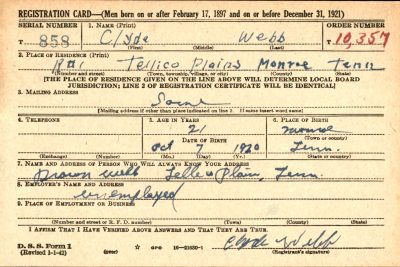 REGISTRATION CARD—(Men born on or after February 17, 1897 and on or before December 31, 1921)
SERIAL NUMBER 1. NAME (Print) ORDER NUMBER
T 858 Clyde Webb T 10,357
(First) (Middle) (Last)
2. PLACE OF RESIDENCE (Print)
R#1 Tellico Plains Monroe Tenn
(Number and street) (Town, township, village, or city) (County) (State)
[THE PLACE OF RESIDENCE GIVEN ON THE LINE ABOVE WILL DETERMINE LOCAL BOARD
JURISDICTION; LINE 2 OF REGISTRATION CERTIFICATE WILL BE IDENTICAL]
3. MAILING ADDRESS
Same
[Mailing address if other than place indicated on line 2. If same insert word same]
4. TELEPHONE 5. AGE IN YEARS 6. PLACE OF BIRTH
21 Monroe
DATE OF BIRTH (Town or county)
Oct 7 1920 Tenn.
(Exchange) (Number) (Mo.) (Day) (Yr.) (State or country)
7. NAME AND ADDRESS OF PERSON WHO WILL ALWAYS KNOW YOUR ADDRESS
Webb Plain, Tenn.
8. EMPLOYER'S NAME AND ADDRESS
unemployed
9. PLACE OF EMPLOYMENT OR BUSINESS
(Number and street or R. F. D. number) (Town) (County) (State)
I AFFIRM THAT I HAVE VERIFIED ABOVE ANSWERS AND THAT THEY ARE TRUE.
D. S. S. Form 1 (over) 16—21630-1 Clyde Webb
(Revised 1-1-42) (Registrant's signature)